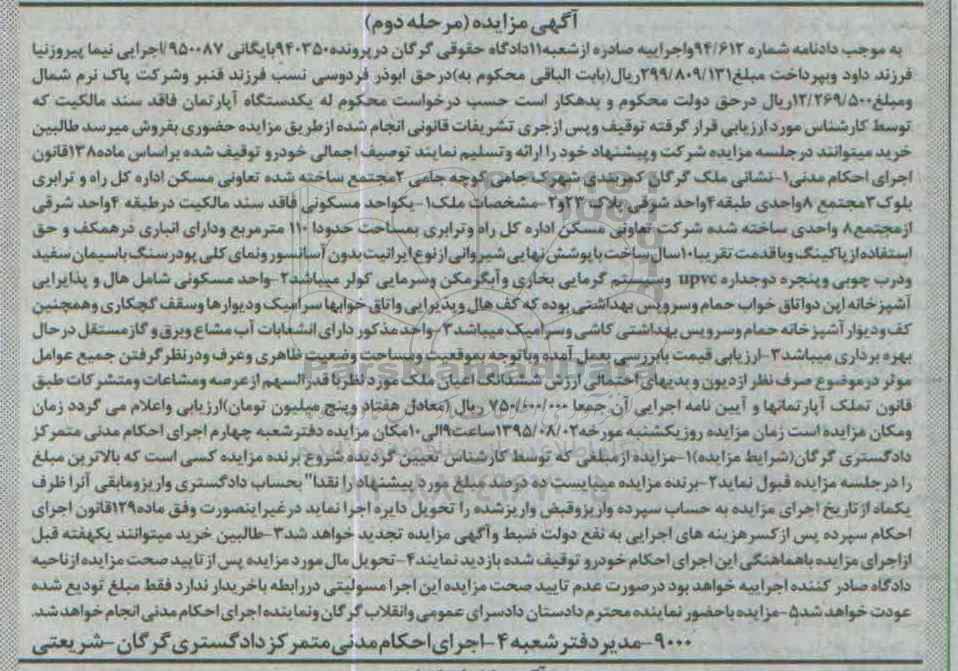 آگهی مزایده (مرحله دوم)
به موجب دادنامه شماره ۹۴/۶۱۲واجراییه صادره ازشعبه۱۱دادگاه حقوقی گرگان درپرونده۹۴۰۳۵۰بایگانی ۹۵۰۰۸۷/اجرایی نیما پیروزنیا
فرزند داود وبپرداخت مبلغ۲۹۹/۸۰۹/۱۳۱ریال(بابت الباقی محکوم به)درحق ابوذر فردوسی نسب فرزند قنبر وشرکت پاک نرم شمال
ومبلغ۱۲/۲۶۹/۵۰۰ریال درحق دولت محکوم و بدهکار است حسب درخواست محکوم له یکدستگاه آپارتمان فاقد سند مالکیت که
توسط کارشناس مورد ارزیابی قرار گرفته توقیف وپس ازجری تشریفات قانونی انجام شده ازطریق مزایده حضوری بفروش میرسد طالبین
خرید میتوانند درجلسه مزایده شرکت وپیشنهاد خود را ارائه وتسلیم نمایند توصیف اجمالی خودرو توقیف شده براساس ماده۱۳۸قانون
اجرای احکام مدنی۱-نشانی ملک گرگان کمربندی شهرک جامی کوچه جامی ۲مجتمع ساخته شده تعاونی مسکن اداره کل راه و ترابری
بلوک۳مجتمع ۸واحدی طبقه۴واحد شرقی پلاک ۲۳و۲-مشخصات ملک۱-یکواحد مسکونی فاقد سند مالکیت درطبقه ۴واحد شرقی
ازمجتمع۸ واحدی ساخته شده شرکت تعاونی مسکن اداره کل راه وترابری بمساحت حدودا ۱۱۰ مترمربع ودارای انباری درهمکف و حق
استفاده ازپاکینگ وباقدمت تقریبا۱۰سال ساخت باپوشش نهایی شیروانی ازنوع ایرانیت بدون آسانسور ونمای کلی پودرسنگ باسیمان سفید
ودرب چوبی وپنجره دوجداره upvc وسیستم گرمایی بخاری وآبگرمکن وسرمایی کولر میباشد۲-واحد مسکونی شامل هال و پذایرایی
آشپزخانه اپن دواتاق خواب حمام وسرویس بهداشتی بوده که کف هال وپذیرایی واتاق خوابها سرامیک ودیوارها وسقف گچکاری وهمچنین
کف ودیوار آشپزخانه حمام وسرویس بهداشتی کاشی وسرامیک میباشد۳-واحد مذکور دارای انشعابات آب مشاع وبرق و گاز مستقل درحال
بهره برداری میباشد۳-ارزیابی قیمت بابررسی بعمل آمده وباتوجه بموقعیت ومساحت وضعیت ظاهری وعرف ودرنظرگرفتن جمیع عوامل
موثر درموضوع صرف نظر ازدیون و بدیهای احتمالی ارزش ششدانگ اعیان ملک مورد نظربا قدرالسهم ازعرصه ومشاعات ومتشرکات طبق
قانون تملک آپارتمانها و آیین نامه اجرایی آن جمعا ۷۵۰/۰۰۰/۰۰۰ ریال (معادل هفتاد وپنج میلیون تومان)ارزیابی واعلام می گردد زمان
ومکان مزایده است زمان مزایده روزیکشنبه مورخه۱۳۹۵/۰۸/۰۲ساعت۹الی۱۰مکان مزایده دفترشعبه چهارم اجرای احکام مدنی متمرکز
دادگستری گرگان(شرایط مزایده)۱-مزایده ازمبلغی که توسط کارشناس تعیین گردیده شروع برنده مزایده کسی است که بالاترین مبلغ
را درجلسه مزایده قبول نماید۲-برنده مزایده میبایست ده درصد مبلغ مورد پیشنهاد را نقدا" بحساب دادگستری واریزومابقی آنرا ظرف
یکماه ازتاریخ اجرای مزایده به حساب سپرده واریزوقبض واریزشده را تحویل دایره اجرا نماید درغیراینصورت وفق ماده۱۲۹قانون اجرای
احکام سپرده پس ازکسرهزینه های اجرایی به نفع دولت ضبط وآگهی مزایده تجدید خواهد شد۳-طالبین خرید میتوانند یکهفته قبل
ازاجرای مزایده باهماهنگی این اجرای احکام خودرو توقیف شده بازدید نمایند۴-تحویل مال مورد مزایده پس از تایید صحت مزایده ازناحیه
دادگاه صادر کننده اجراییه خواهد بود درصورت عدم تایید صحت مزایده این اجرا مسولیتی دررابطه باخریدار ندارد فقط مبلغ تودیع شده
عودت خواهد شد۵-مزایده باحضور نماینده محترم دادستان دادسرای عمومی وانقلاب گرگان ونماینده اجرای احکام مدنی انجام خواهد شد.
۹۰۰۰-مدیر دفترشعبه ۴-اجرای احکام مدنی متمرکز دادگستری گرگان-شریعتی
ParsNamadData